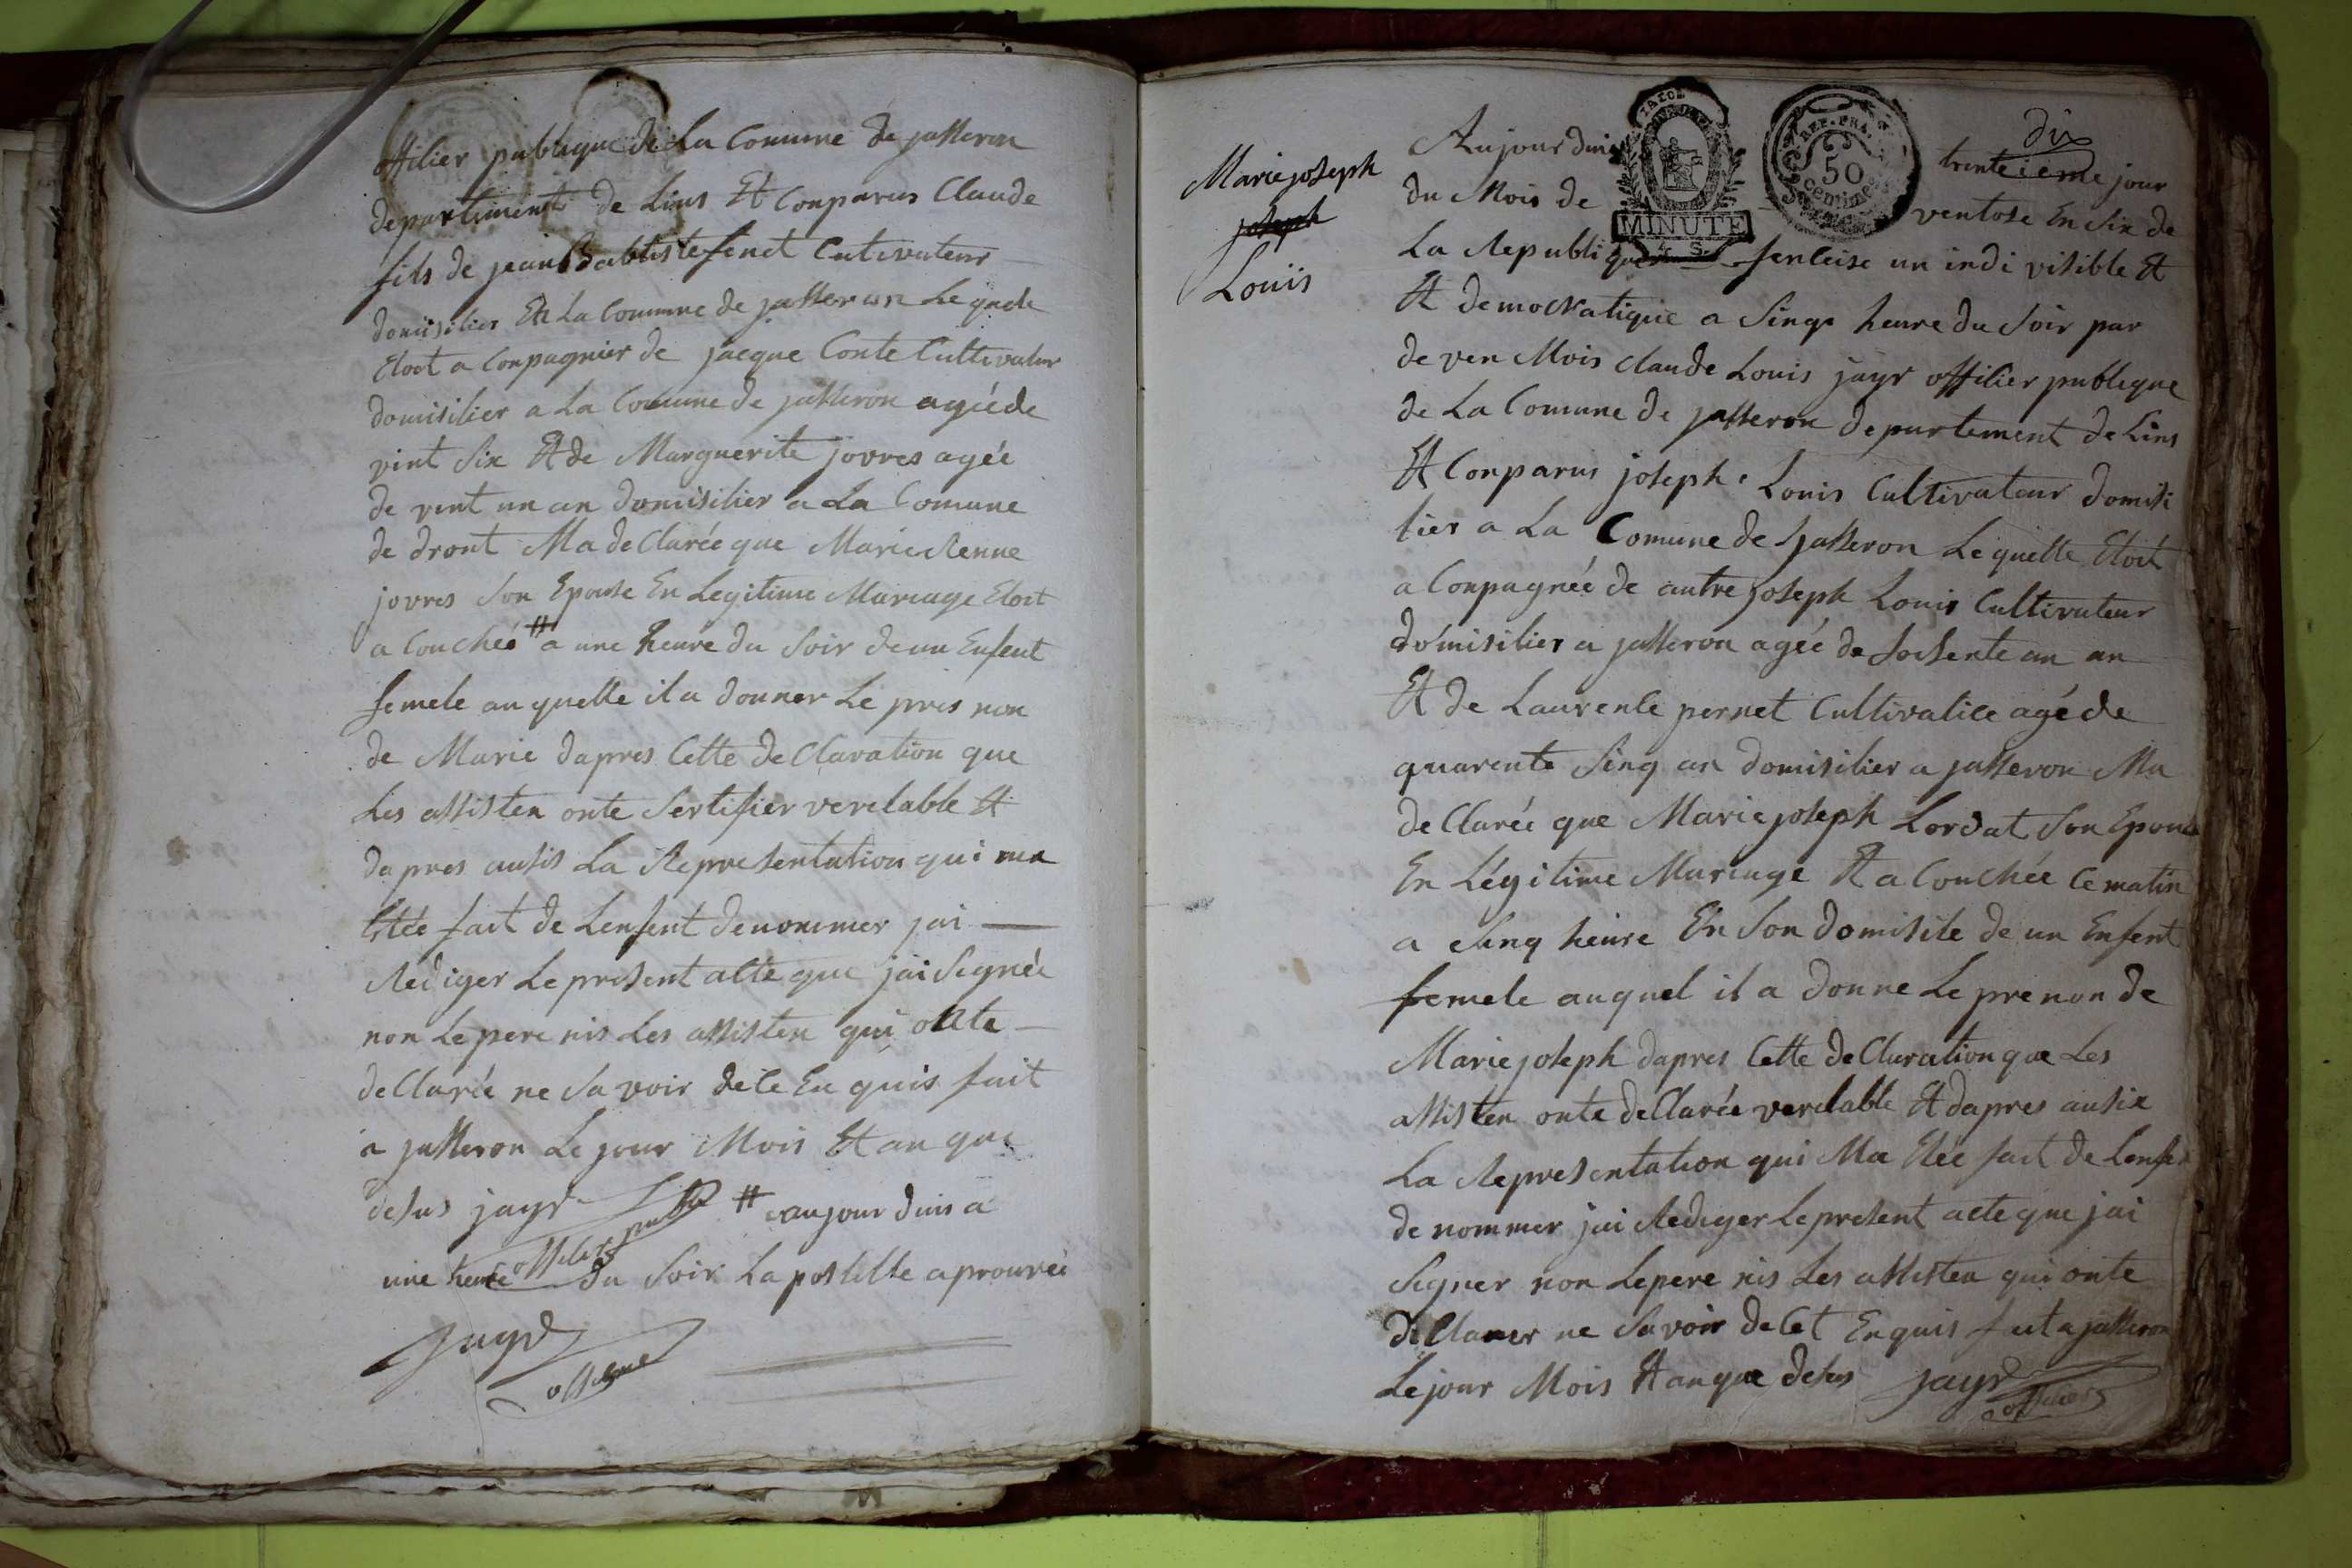 offilier publique de La Comune de jasseron
departiment de Lins Et Conparus Claude
fils de jean Babtiste fenet Cutivateur
domisilier En La Comune de jasseron Le quele
Etoit a Conpagnier de jacque Conte Cultivateur
domisilier a La Comune de jasseron agéede
vint Six Et de Marguerite jovres agée
de vent un an domisilier a La Comune
de dront Ma de Clarée que Marie Renne
jovres Son Epouse En Legitime Mariage Etoit
a Couchée # a une heure du Soir de un Enfent
femele au quelle il a donner Le pres non
de Marie dapres Cette de Claration que
Les assisten onte Sertifier veretable Et
da pres ausis La Representation qui ma
Etée fait de Lenfent denommer jai
Rediger Le present alte que jai Signée
non Le pere nis Les assisten qui onte
de Clarée ne Sa voir de Ce En quis fait
a jasseron Le jour Mois Et an que
desus jayr offilier publi # aujour duis a
une heure du Soir La postille aprouvée
Jayr
offilier
Marie joseph
joseph
Louis
MINUTE
REP. FRA.
50
centimes
dix
Aujour duis trenteieme jour
du Mois de ventose En Six de
La Republi que fenceise un indi visible Et
Et democratique a Sinq heure du Soir par
de ven Mois Claude Louis jayr offilier publique
de La Comune de jasseron departement de Lins
Et Conparus joseph Louis Cultivateur domisi
lier a La Comune de jasseron Le quelle Etoit
a Conpagnée de autre joseph Louis Cultivateur
domisilier a jasseron agée de Soisente un an
Et de Laurence pernet Cultivatice agéde
quarente Sinq an domisilier a jasseron Ma
de Clarée que Marie joseph Lordat Son Epouse
En Légitime Mariage Et a Couchée Ce matin
a Sinq heure En Son domisile de un Enfent
femele auquel il a donne Le prenon de
Marie joseph dapres Cette de Claration que Les
assisten onte de Clarée veretable Et dapres ausix
La Representation qui Ma Etée fait de Lenfen
de nommer jai Rediger Le present acte que jai
Signer non Lepere nis Les assisten qui onte
de Clarer ne Savoir de Cet Enquis fait a jasseron
Le jour Mois Et an que desus jayr
offilier